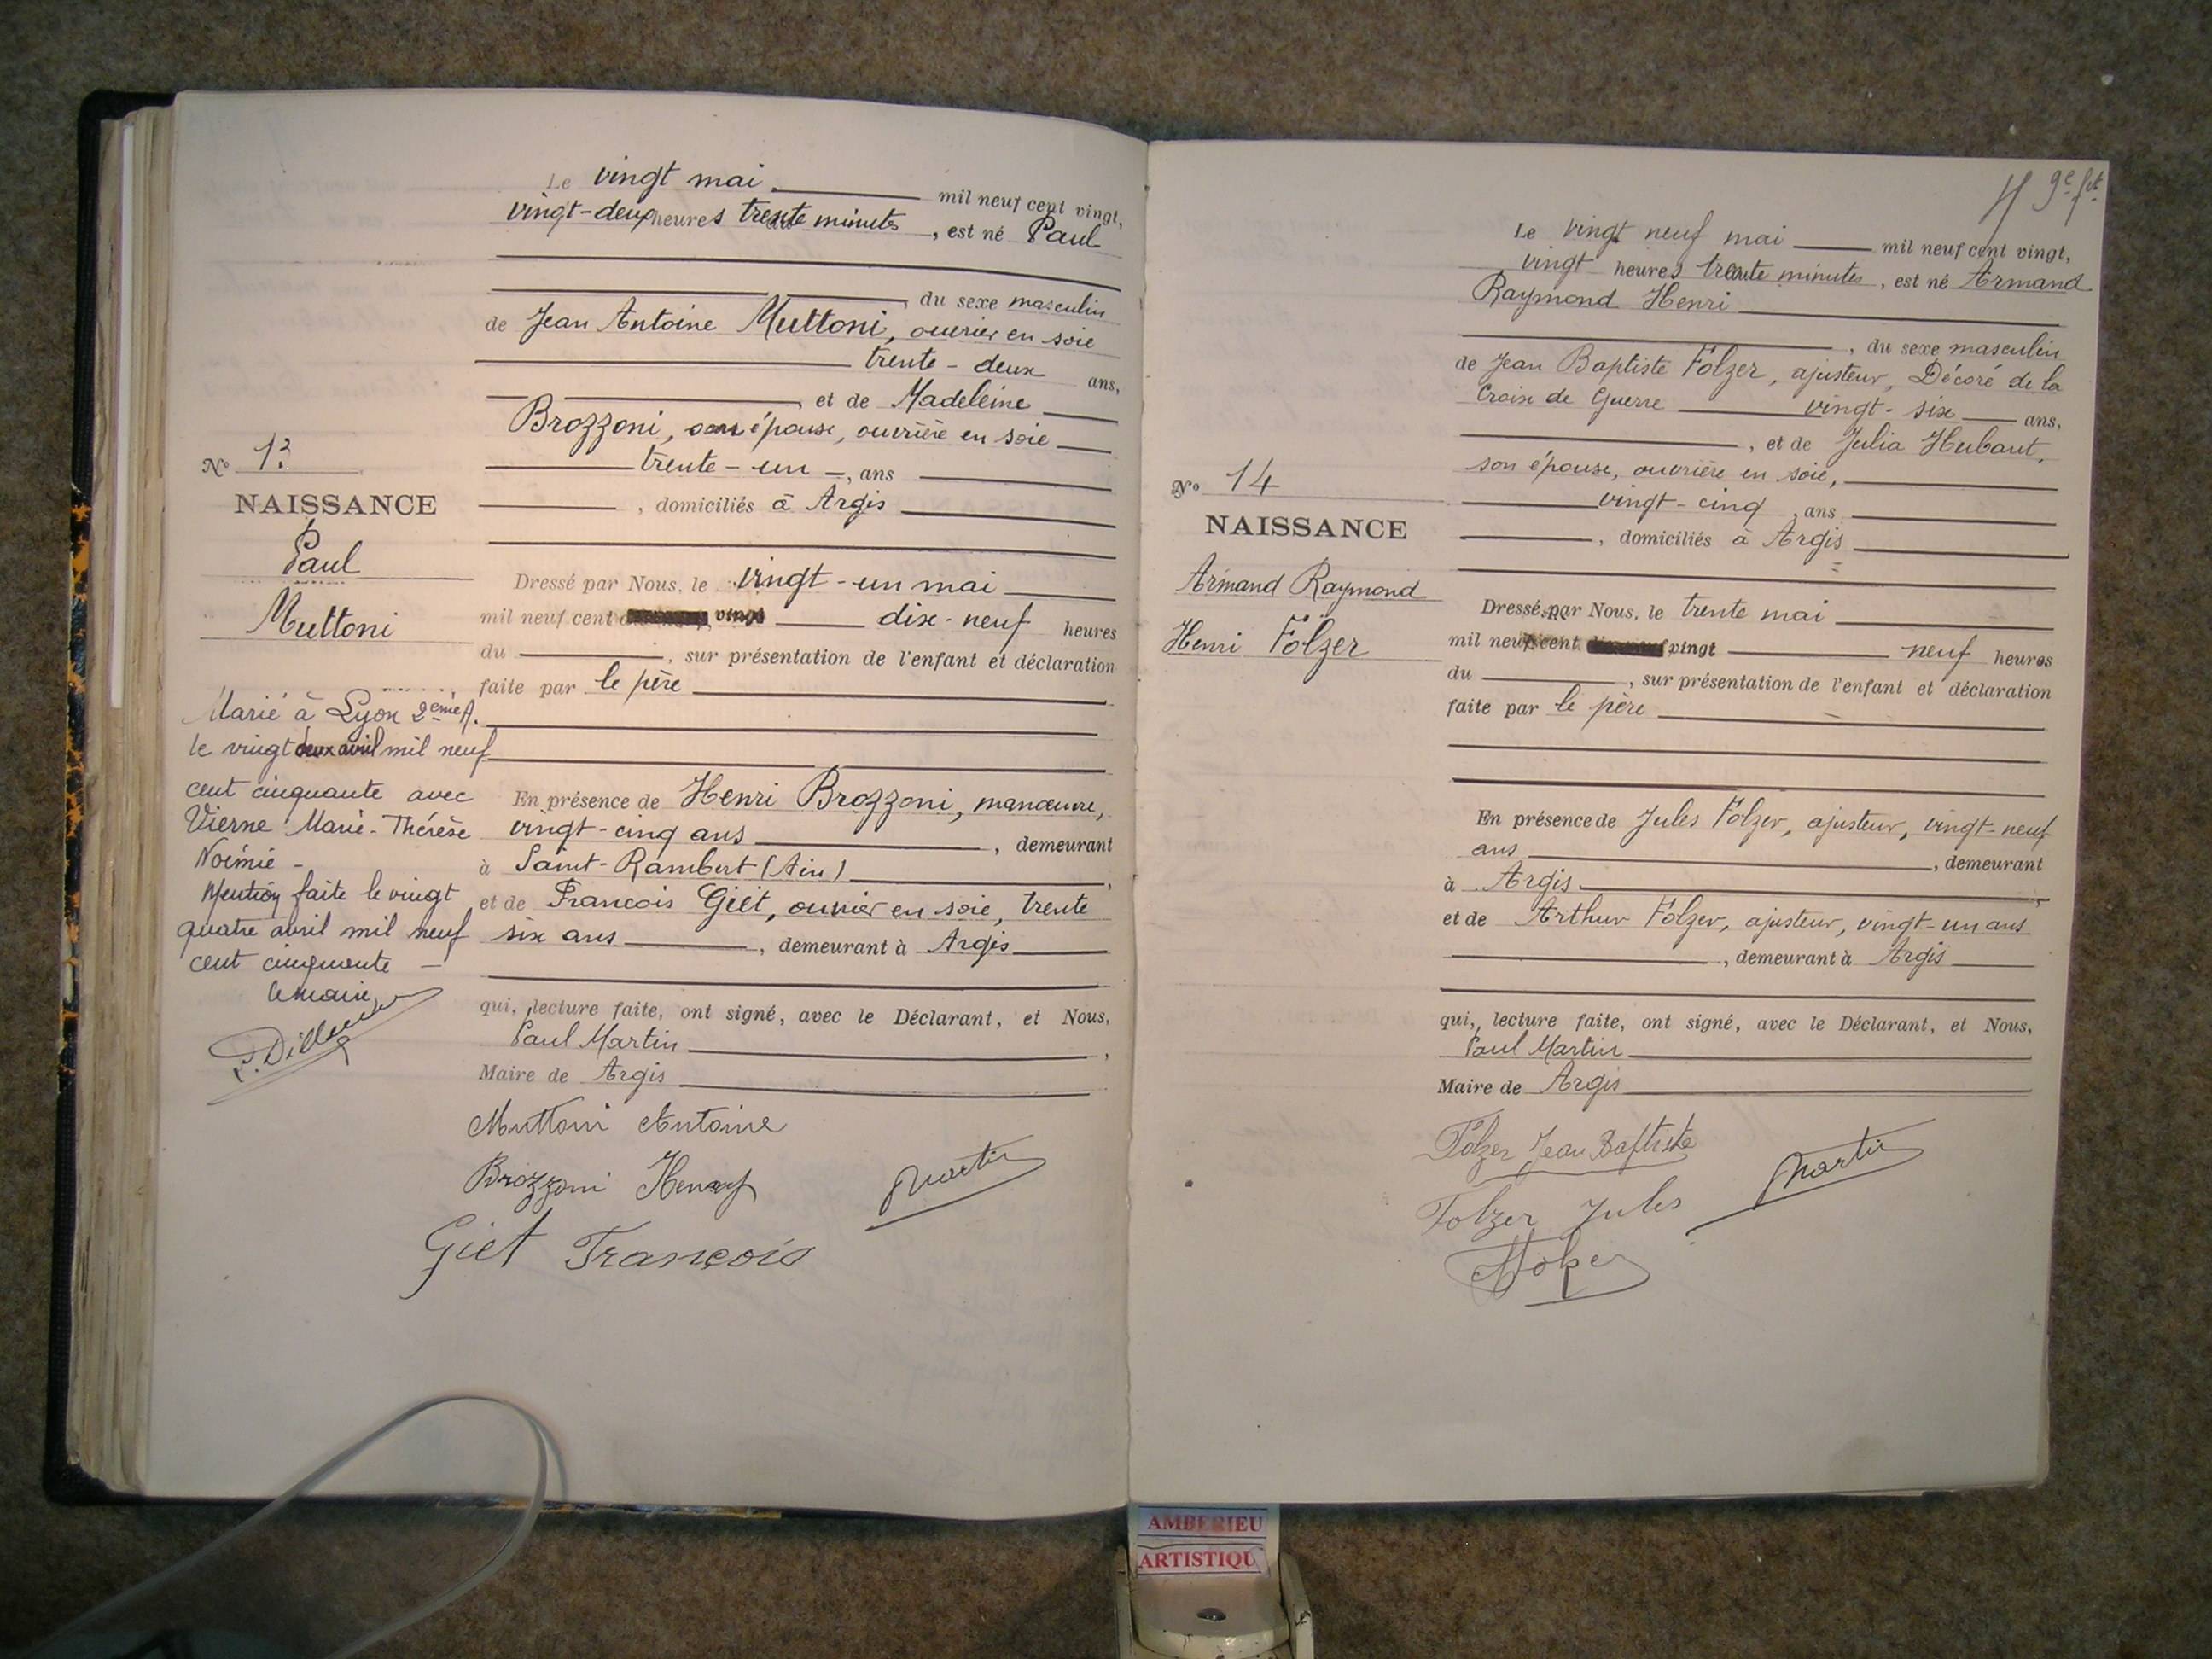 Le vingt mai mil neuf cent vingt,
vingt-deux heures trente minutes, est né Paul
du sexe masculin
de Jean Antoine Muttoni, ouvrier en soie
trente-deux ans,
et de Madeleine
Brozzoni, son épouse, ouvrière en soie
trente-un, ans
, domiciliés à Argis
No 13
NAISSANCE
Paul
Muttoni
Dressé par Nous, le vingt-un mai
mil neuf cent vingt dix-neuf heures
du , sur présentation de l'enfant et déclaration
faite par le père
Marié à Lyon 2ème A.
le vingt deux avril mil neuf
cent cinquante avec
Vierne Marie-Thérèse
Noémie -
Mention faite le vingt
quatre avril mil neuf
cent cinquante -
le maire
En présence de Henri Brozzoni, manœuvre,
vingt-cinq ans , demeurant
à Saint-Rambert (Ain) ,
et de Francois Giet, ouvrier en soie, trente
six ans , demeurant à Argis
qui, lecture faite, ont signé, avec le Déclarant, et Nous,
Paul Martin ,
Maire de Argis
Muttoni Antoine
Brozzoni Henry
Martin
Giet François
9e ft.
Le vingt neuf mai mil neuf cent vingt,
vingt heures trente minutes, est né Armand
Raymond Henri
, du sexe masculin
de Jean Baptiste Folzer, ajusteur, Décoré de la
Croix de Guerre vingt-six ans,
, et de Julia Hubaut,
son épouse, ouvrière en soie,
vingt-cinq, ans
, domiciliés à Argis
No 14
NAISSANCE
Armand Raymond
Henri Folzer
Dressé par Nous, le trente mai
mil neuf cent vingt neuf heures
du , sur présentation de l'enfant et déclaration
faite par le père
En présence de Jules Folzer, ajusteur, vingt-neuf
ans , demeurant
à Argis ,
et de Arthur Folzer, ajusteur, vingt-un ans
, demeurant à Argis
qui, lecture faite, ont signé, avec le Déclarant, et Nous,
Paul Martin
Maire de Argis
Folzer Jean Baptiste
Martin
Folzer Jules
AMBERIEU
ARTISTIQU